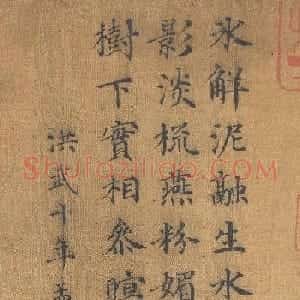 氷解泥融生水
影淡梳燕粉媚
樹下實相叅暄
洪武十年
Shufaziliao.Com